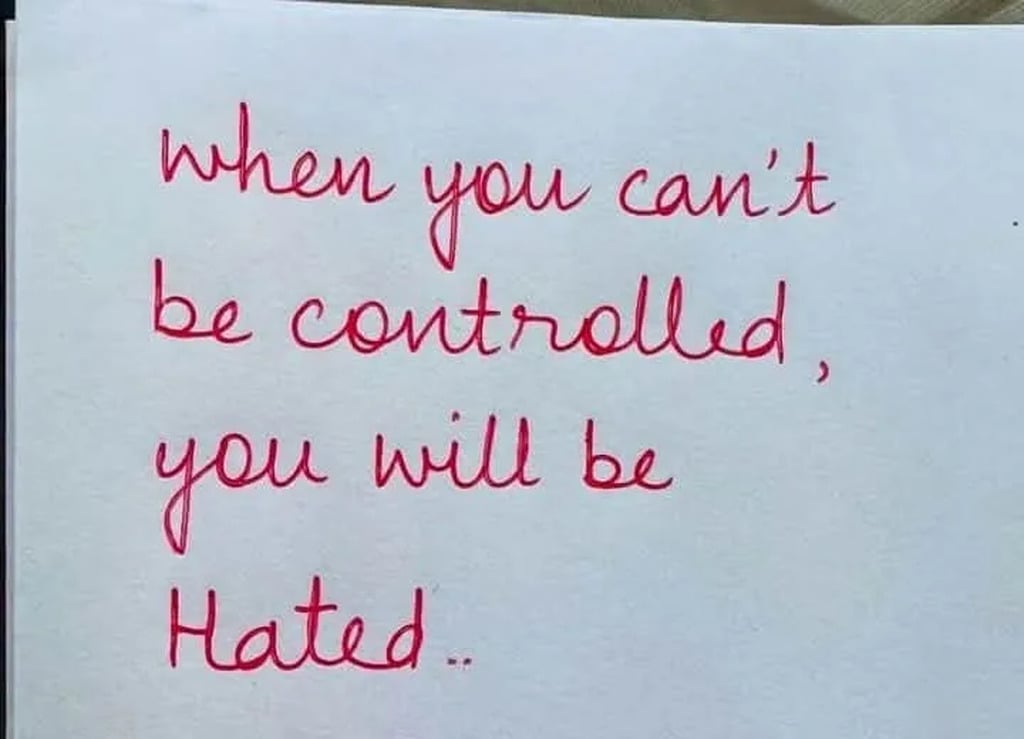 when you can't
be controlled,
you will be
Hated..